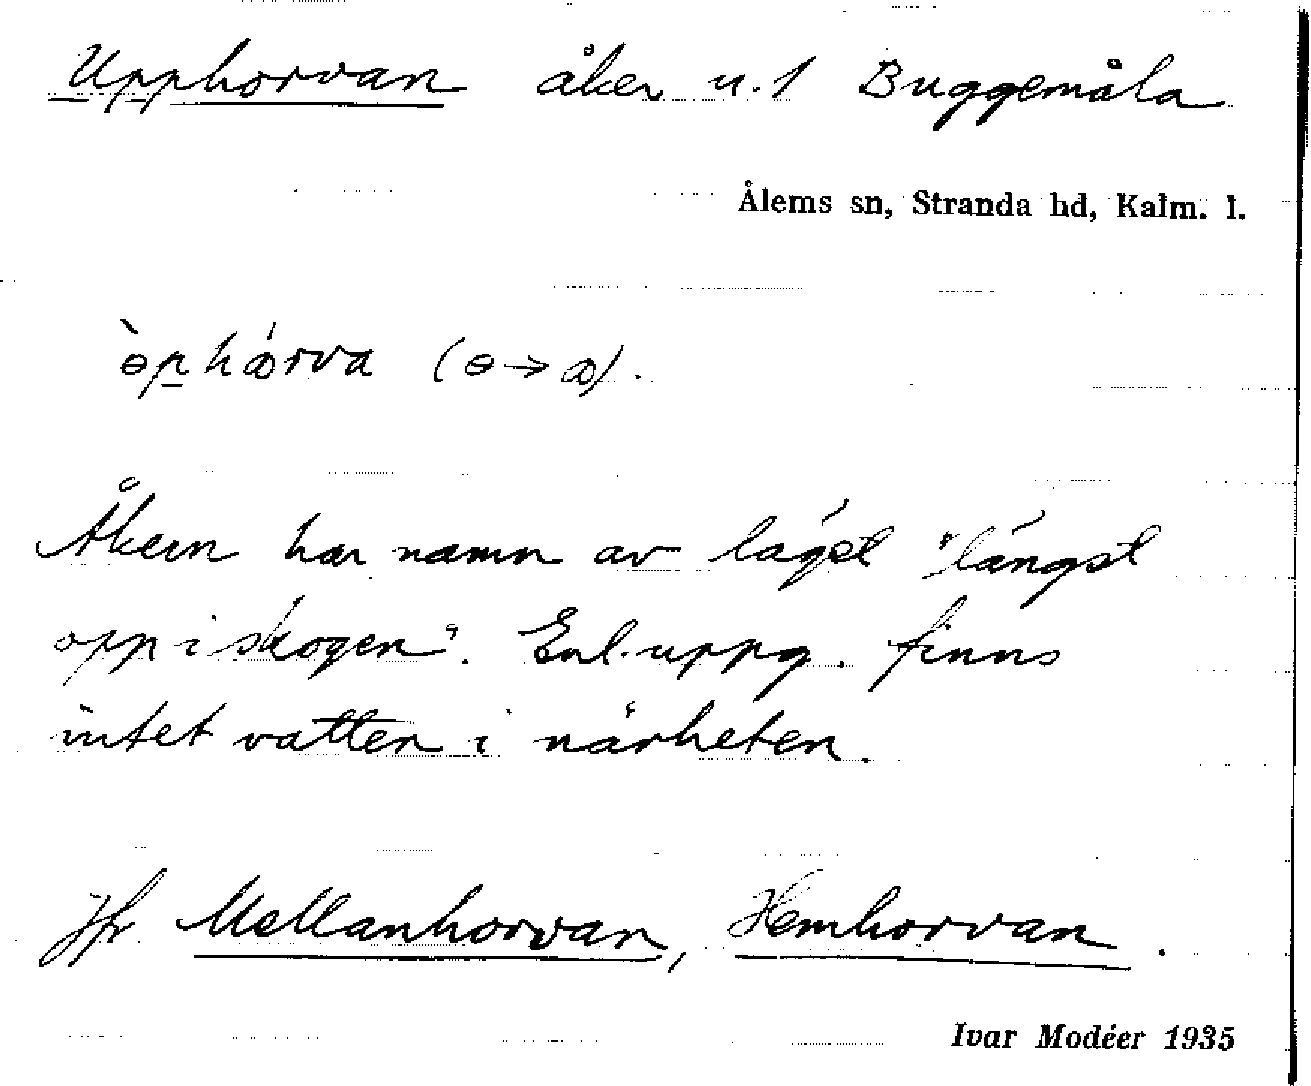 Upphorvan åker u. 1 Buggemåla
Ålems sn, Stranda hd, Kalm. l.
ɵ̀phǿrva (ɵ→ꝏ).
Åkern har namn av läget "längst
opp i skogen". Enl. uppg. finns
intet vatten i närheten.
Jfr Mellanhorvan, Hemhorvan.
Ivar Modéer 1935